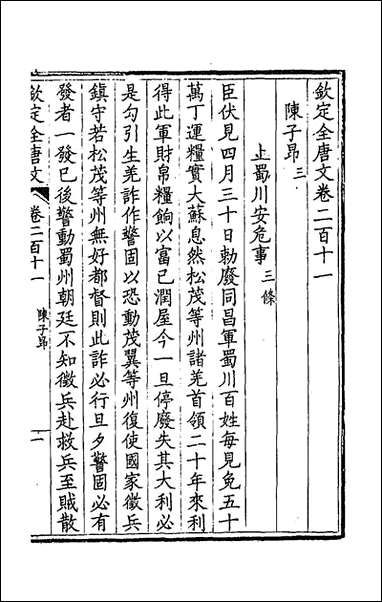 欽定全唐文卷二百十一
陳子昂三
上蜀川安危事三條
臣伏見四月三十日勅廢同昌軍蜀川百姓每見免五十
萬丁運糧實大蘇息然松茂等州諸羌首領二十年來利
得此軍財帛糧餉以富己潤屋今一旦停廢失其大利必
是勾引生羌詐作警固以恐動茂翼等州復使國家徵兵
鎮守若松茂等州無好都督則此詐必行旦夕警固必有
發者一發已後警動蜀州朝廷不知徵兵赴救兵至賊散
欽定全唐文
卷二百十一
陳子昂
一